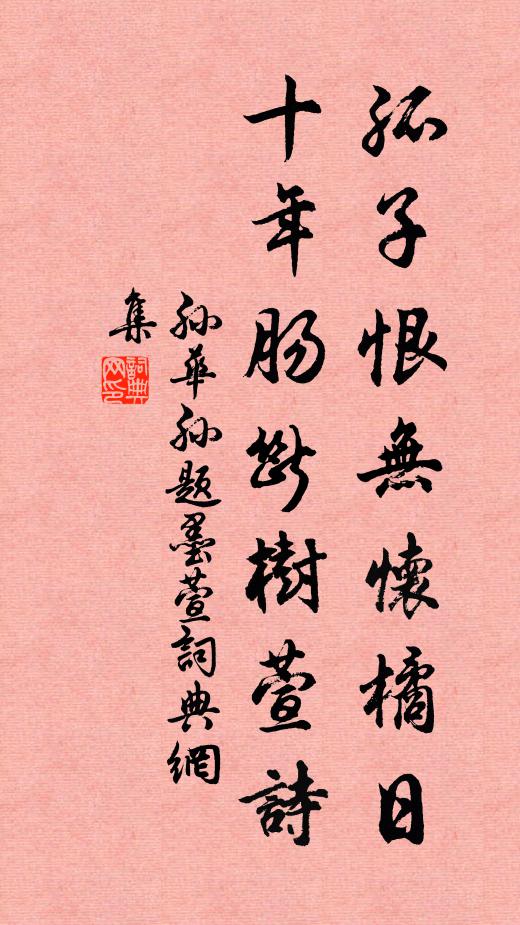 孤子恨無懷橘日
十年肠斷樹萱詩
孫華孫題墨萱詞典網
集
詞典
网印